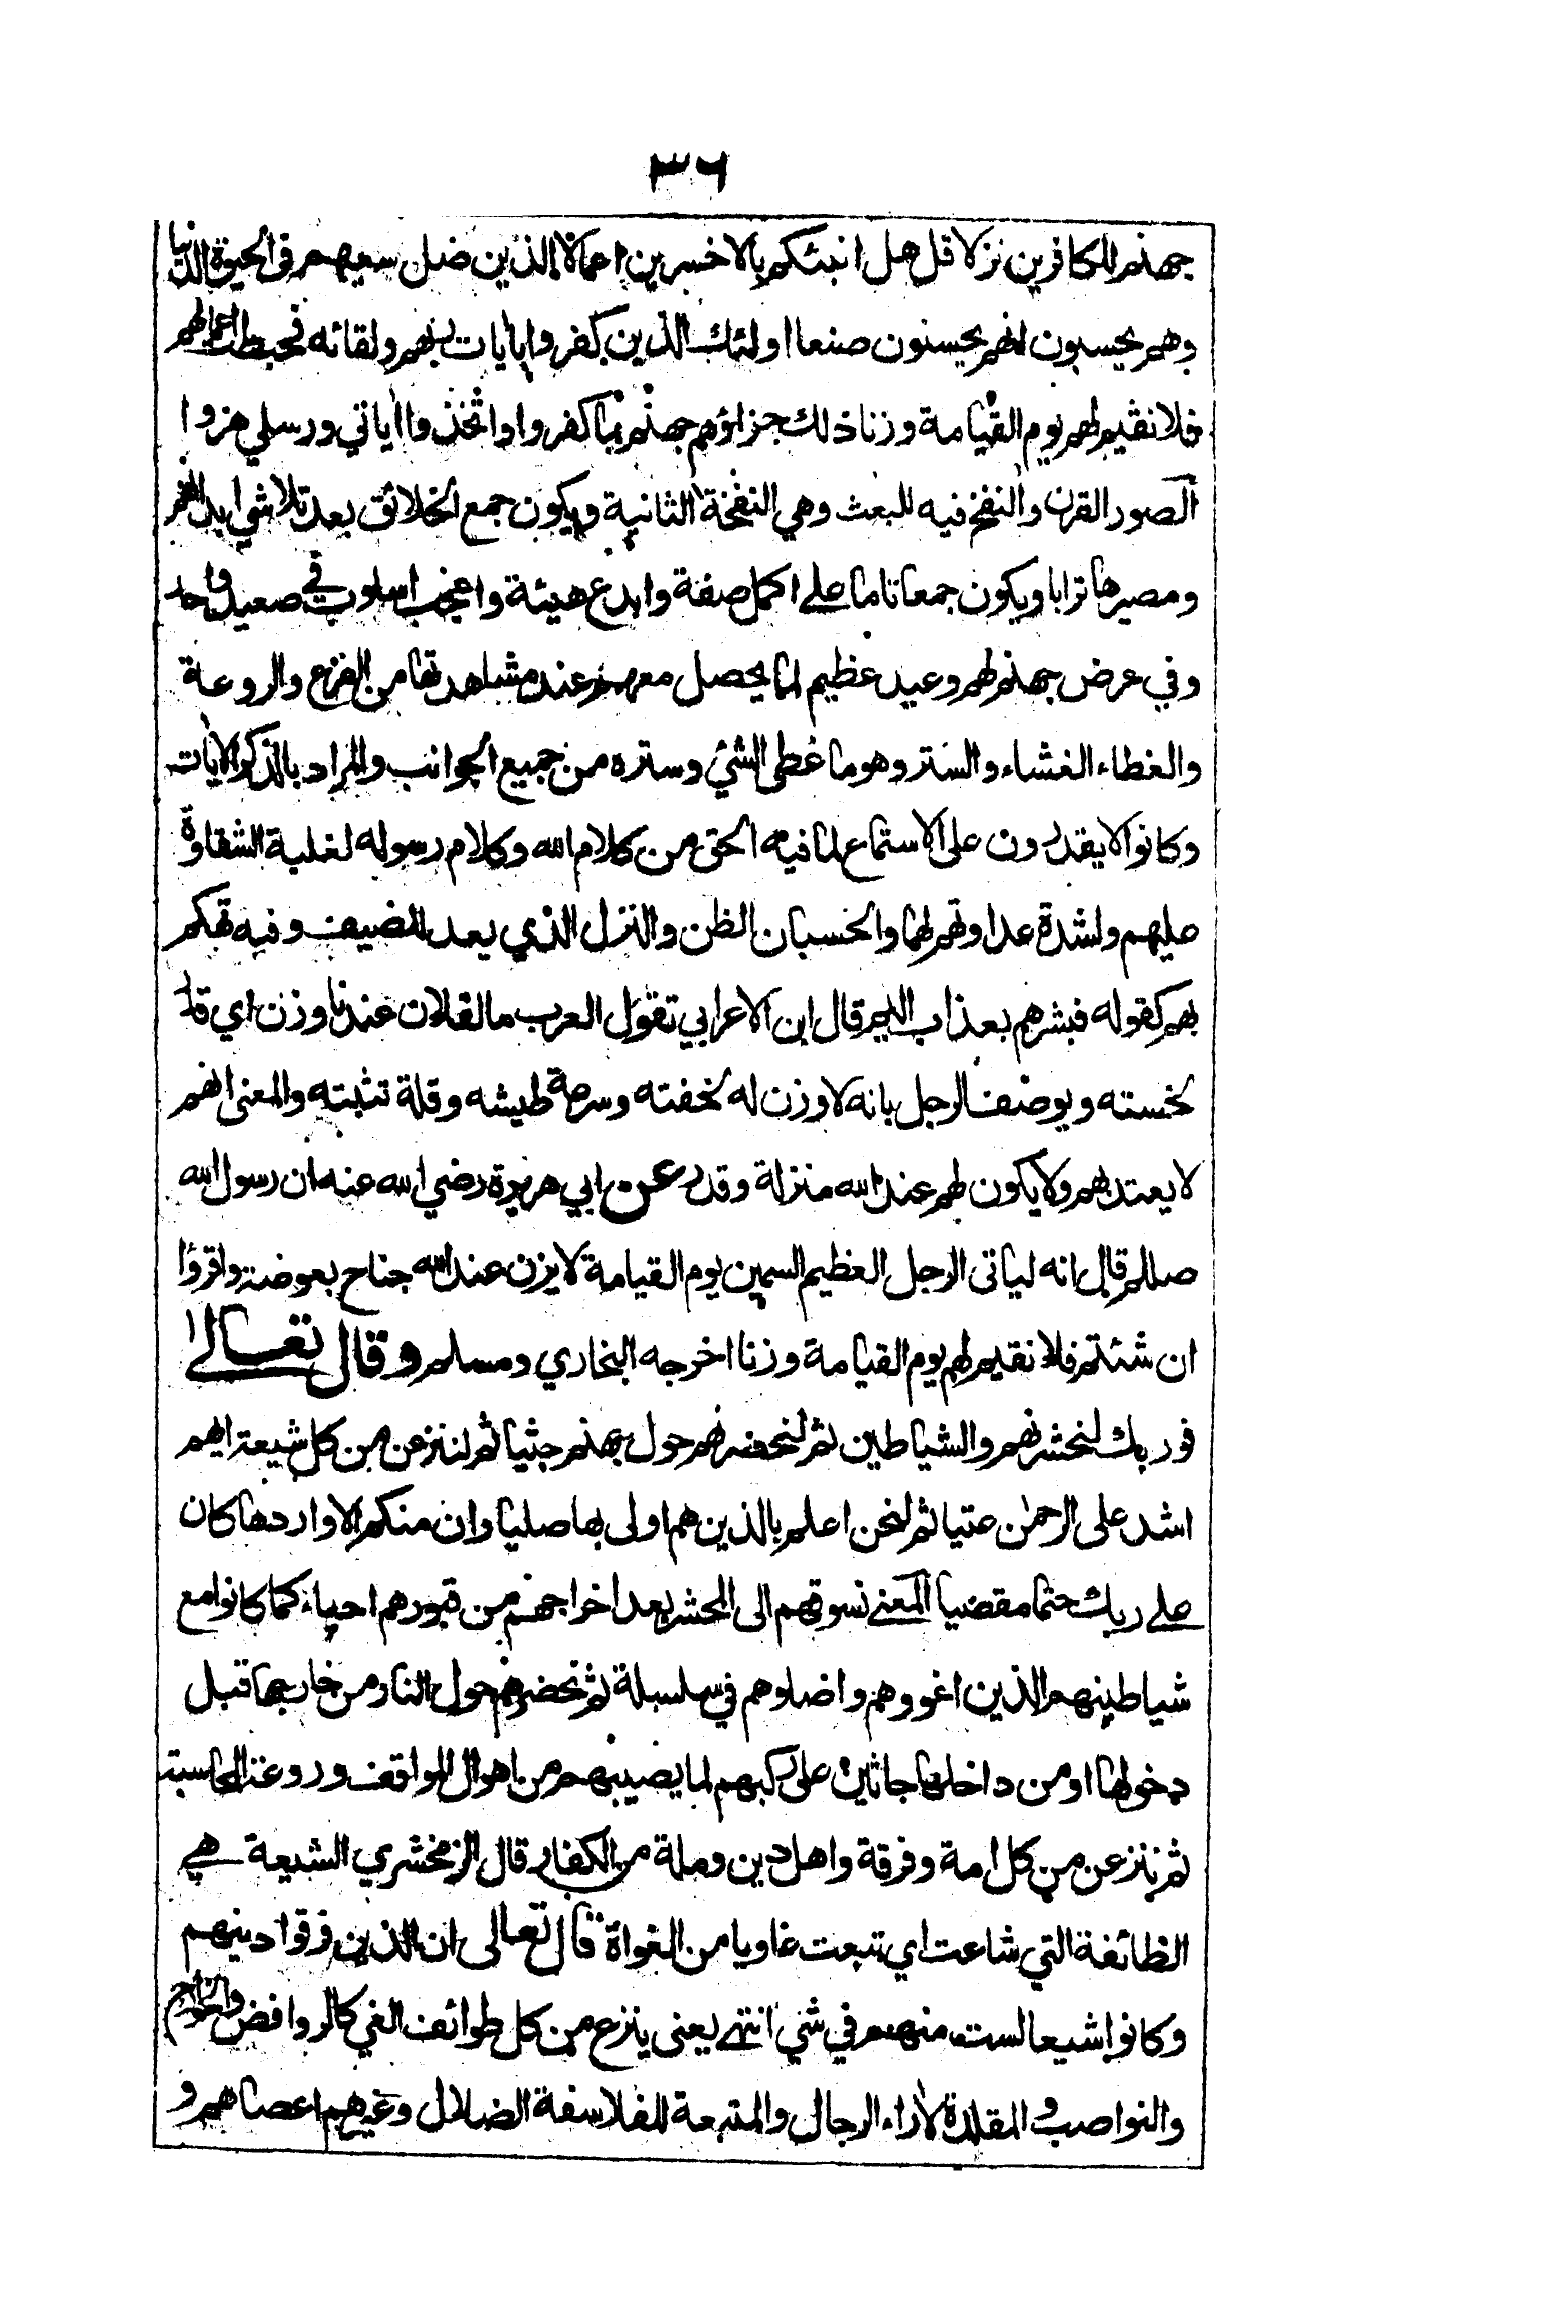 ٣٦
جهنم للكافرين نزلا قل هل انبئكم بالاخسرين اعمالا الذين ضل سعيهم في الحيوة الدنيا
وهم يحسبون انهم يحسنون صنعا اولئك الذين كفروا بايات ربهم ولقائه فحبطت اعمالهم
فلا نقيم لهم يوم القيامة وزنا ذلك جزاؤهم جهنم بما كفروا واتخذوا اياتي ورسلي هزوا
الصور القرن والنفخ فيه للبعث وهي النفخة الثانية ويكون جمع الخلائق بعد تلاشي ابدانهم
ومصيرها ترابا ويكون جمعا تاما على اكمل صفة وابدع هيئة واعجب اسلوب في صعيد واحد
وفي عرض جهنم لهم وعيد عظيم لما يحصل معهم عند مشاهدتها من الفزع والروعة
والغطاء الغشاء والستر وهو ما غطى الشئ وستره من جميع الجوانب والمراد بالذكر الايات
وكانوا لا يقدرون على الاستماع لما فيه الحق من كلام الله وكلام رسوله لغلبة الشقاوة
عليهم ولشدة عداوتهم لهما والحسبان الظن والنزل الذي يعد للضيف وفيه تهكم
بهم كقوله فبشرهم بعذاب اليم قال ابن الاعرابي تقول العرب ما لفلان عندنا وزن اي قدر
لخسته ويوصف الرجل بانه لا وزن له لخفته وسرعة طيشه وقلة تثبته والمعنى انهم
لا يعتد بهم ولا يكون لهم عند الله منزلة وقدر عن ابي هريرة رضي الله عنه ان رسول الله
صللم قال انه لياتى الرجل العظيم السمين يوم القيامة لا يزن عند الله جناح بعوضة واقرؤا
ان شئتم فلا نقيم لهم يوم القيامة وزنا اخرجه البخاري ومسلم وقال تعالى
فوربك لنحشرنهم والشياطين ثم لنحضرنهم حول جهنم جثيا ثم لننزعن من كل شيعة ايهم
اشد على الرحمن عتيا ثم لنحن اعلم بالذين هم اولى بها صليا وان منكم الا واردها كان
على ربك حتما مقضيا المعنى نسوقهم الى المحشر بعد اخراجهم من قبورهم احياء كما كانوا مع
شياطينهم الذين اغووهم واضلوهم في سلسلة ثم نحضرهم حول النار من خارجها قبل
دخولها او من داخلها جاثين على ركبهم لما يصيبهم من اهوال المواقف وروعة المحاسبة
ثم ننزعن من كل امة وفرقة واهل دين وملة من الكفار قال الزمخشري الشيعة هي
الطائفة التي شاعت اي تبعت غاويا من الغواة قال تعالى ان الذين فرقوا دينهم
وكانوا شيعا لست منهم في شي انتهى يعنى ينزع من كل طوائف الغي كالروافض والخوارج
والنواصب والمقلدة لاراء الرجال والمتبعة للفلاسفة الضلال وغيرهم اعصاهم و